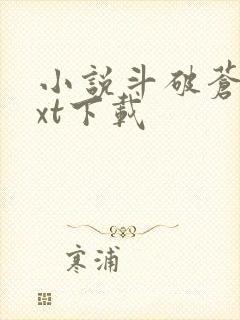 小説斗破蒼
xt下載
寒浦